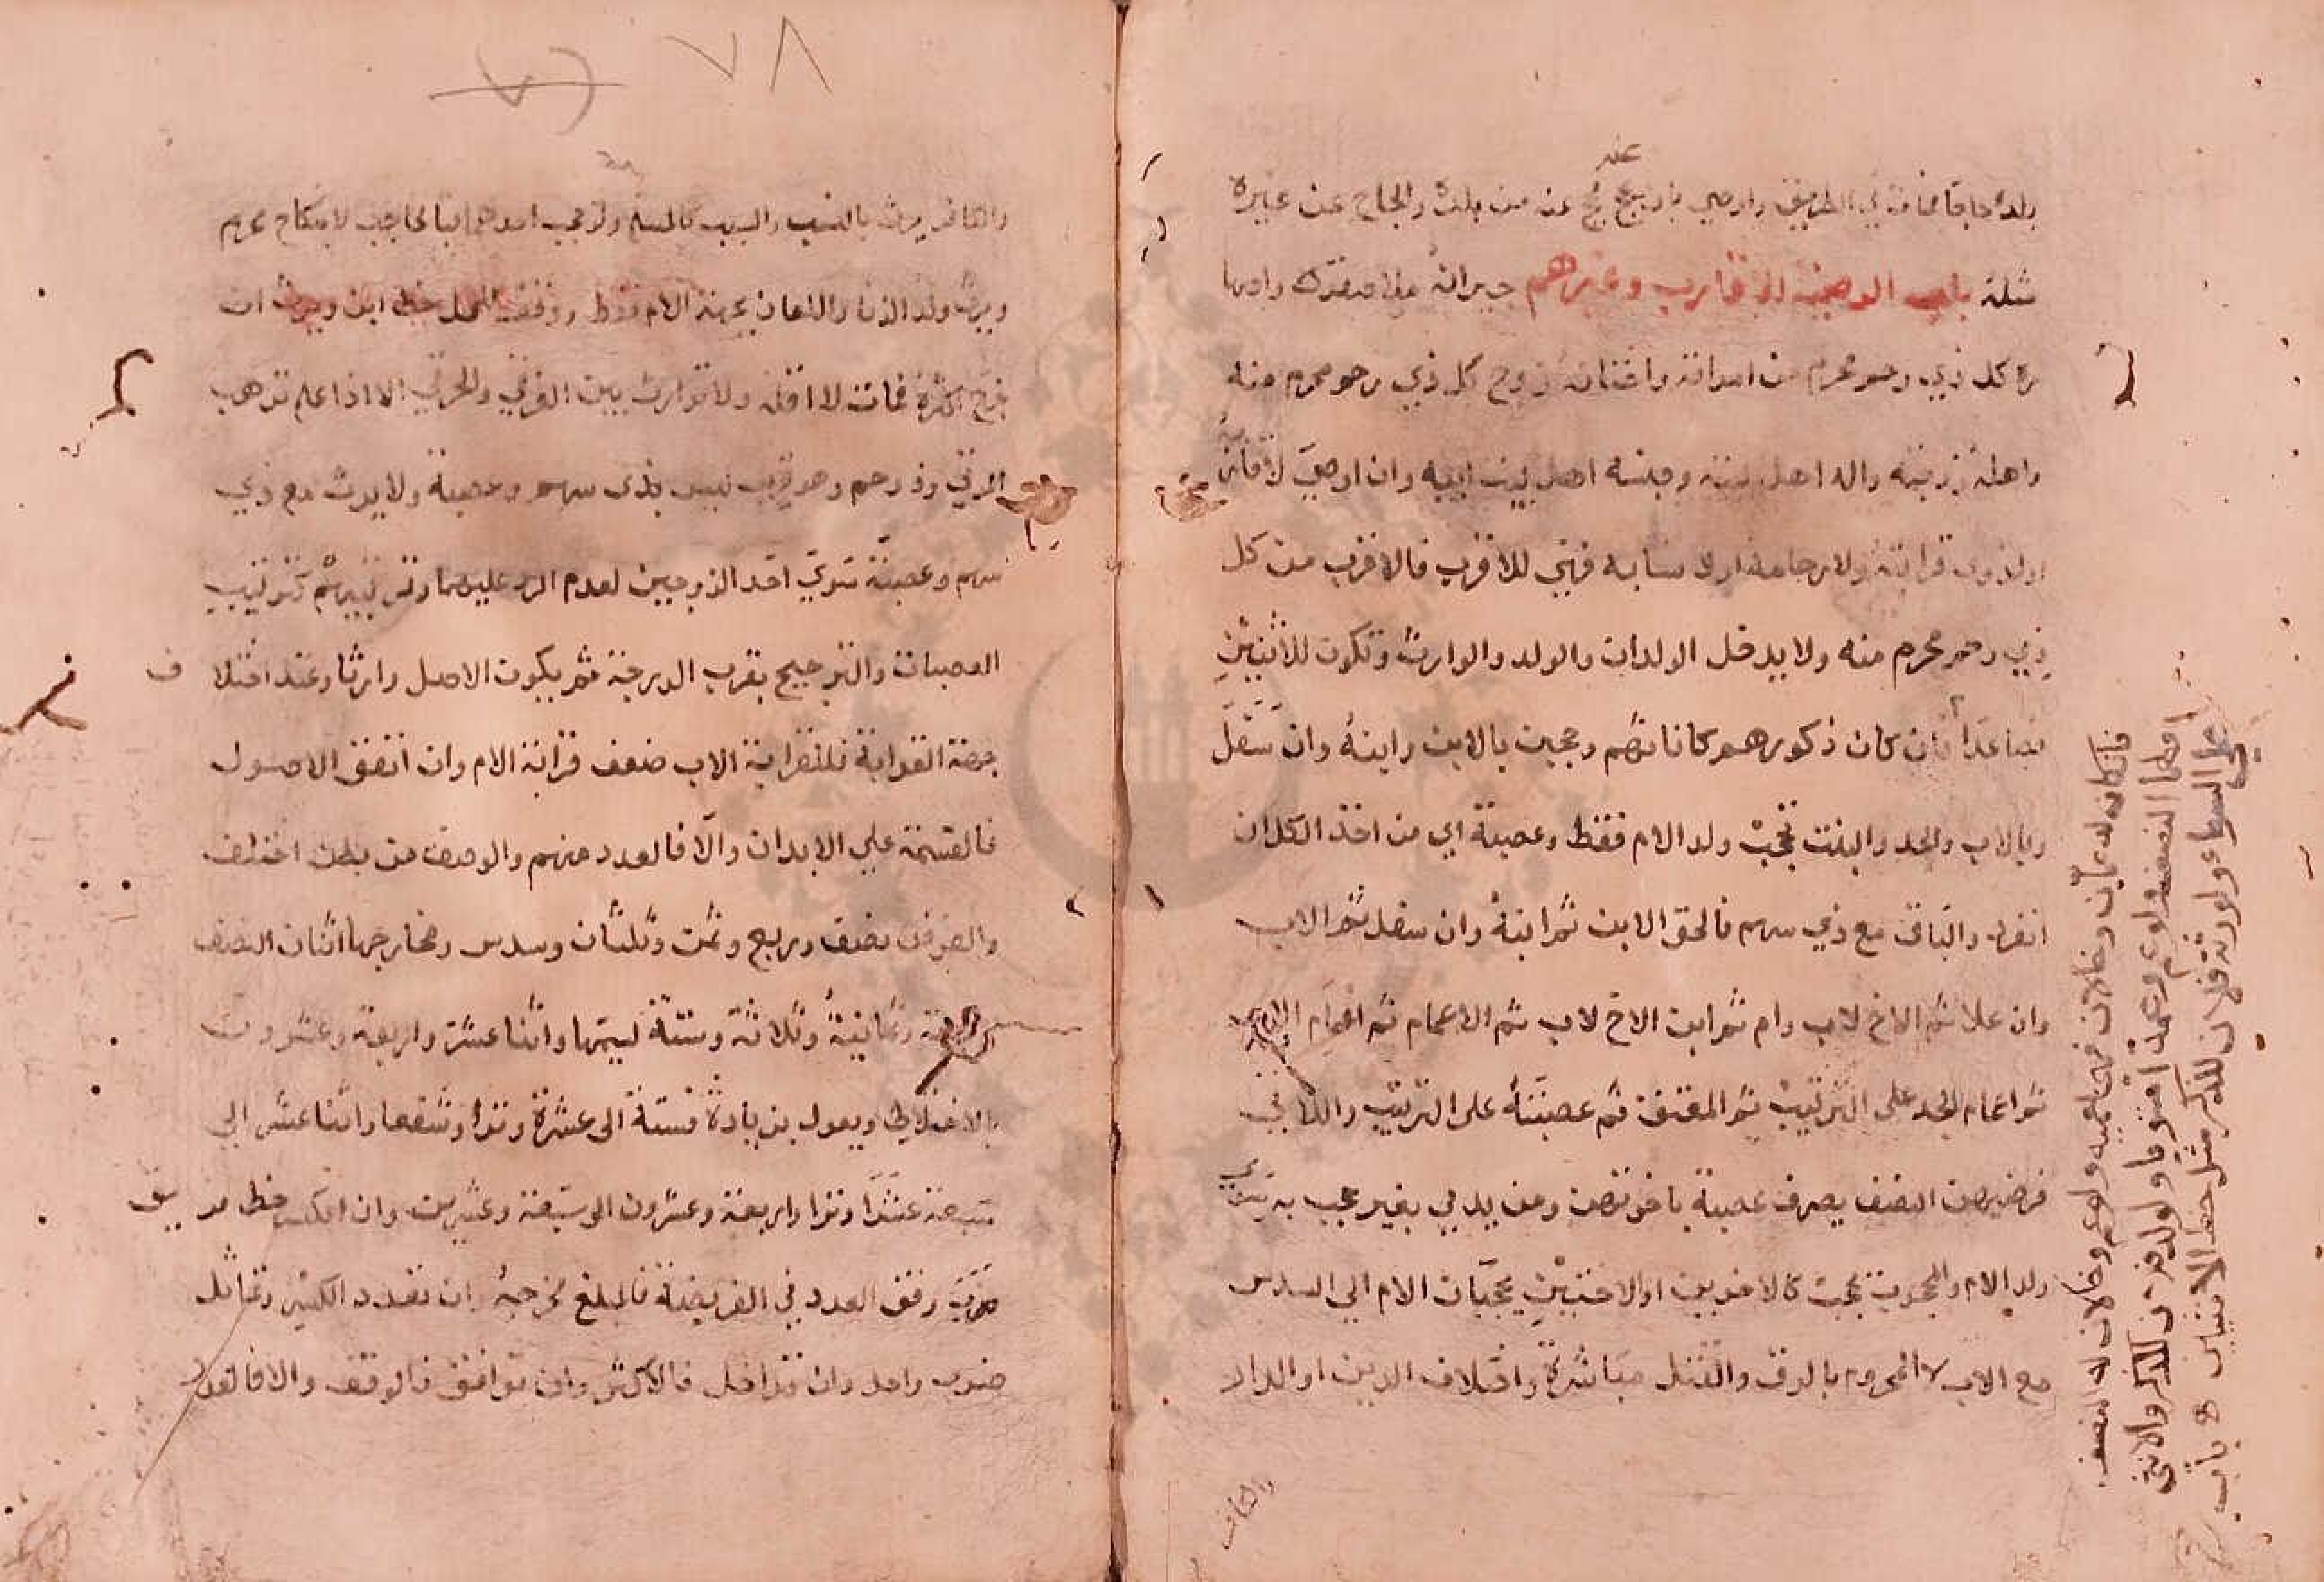 عنه
بلده حاجا فمات في الطريق واوصي بان يحج عنه من بلده والحاج عن غيره
مثله باب الوصية للاقارب وغيرهم جيرانه ملاصقوه واصها
ره كل ذي رحم محرم من امراته واختانه زوج كل ذي رحم محرم منه
واهله زوجته واله اهل بيته وجنسه اهل بيت ابيه وان اوصي لاقاربه
او لذوي قرابته ولارحامه او لانسابه فهي للاقرب فالاقرب من كل
ذي رحم محرم منه ولا يدخل الوالدان والولد والوارث وتكون للاثنين
فصاعدا
وبالاب والجد والبنت تحجب ولد الام فقط وعصبة اي من اخذ الكل ان
انفرد والباقي مع ذي سهم فالحق الابن ثم ابنه وان سفل ثم الاب
وان علا ثم الاخ لاب وام ثم ابن الاخ لاب ثم الاعمام ثم اعمام الاب
ثم اعمام الجد على الترتيب ثم المعتق ثم عصبته على الترتيب واللاتي
فرضهن النصف يصرن عصبة باخوتهن ومن يدلي بغير حجب به سوي
ولد الام والمحجوب يحجب كالاخوين او الاختين يحجبان الام الي السدس
مع الاب لا المحروم بالرق والقتل مباشرة واختلاف الدين او الدار
والكافر
فان كان له عمان وخالان فهي لعميه ولو عم وخالان له النصف
ولهما النصف ولو عم وعمة استويا ولولد فلان للذكر والانثى
على السواء ولورثة فلان للذكر مثل حظ الانثيين باب
٧٨
والكافر يرث بالنسب والسبب كالمسلم ولو حجب احدهما فبالحاجب لا بنكاح محرم
ويرث ولد الزنا واللعان بجهة الام فقط ووقف للحمل حظ ابن ويرث ان
خرج اكثره فمات لا اقله ولا توارث بين الغرقي والحرقي الا اذا علم ترتيب
الموتي وذو رحم وهو قريب ليس بذي سهم وعصبة ولا يرث مع ذي
سهم وعصبة سوي احد الزوجين لعدم الرد عليهما وترتيبهم كترتيب
العصبات والترجيح بقرب الدرجة ثم بكون الاصل وارثا وعند اختلا ف
جهة القرابة فلقرابة الاب ضعف قرابة الام وان اتفق الاصول
فالقسمة علي الابدان والا فالعدد منهم والوصف من بطن اختلف
والفروض نصف وربع وثمن وثلثان وسدس ومخارجها اثنان النصف
واربعة وثمانية وثلاثة وستة لسميها واثنا عشر واربعة وعشرون
بالاختلاط ويعول بزيادة فستة الى عشرة وترا وشفعا واثنا عشر الي
سبعة عشر وترا واربعة وعشرون الى سبعة وعشرين وان انكسر حظ فر يق
ضرب وفق العدد في الفريضة فالمبلغ مخرجه وان تعدد الكسر وتماثل
ضرب واحد وان تداخل فالاكثر وان توافق فالوفق والا فالعدد